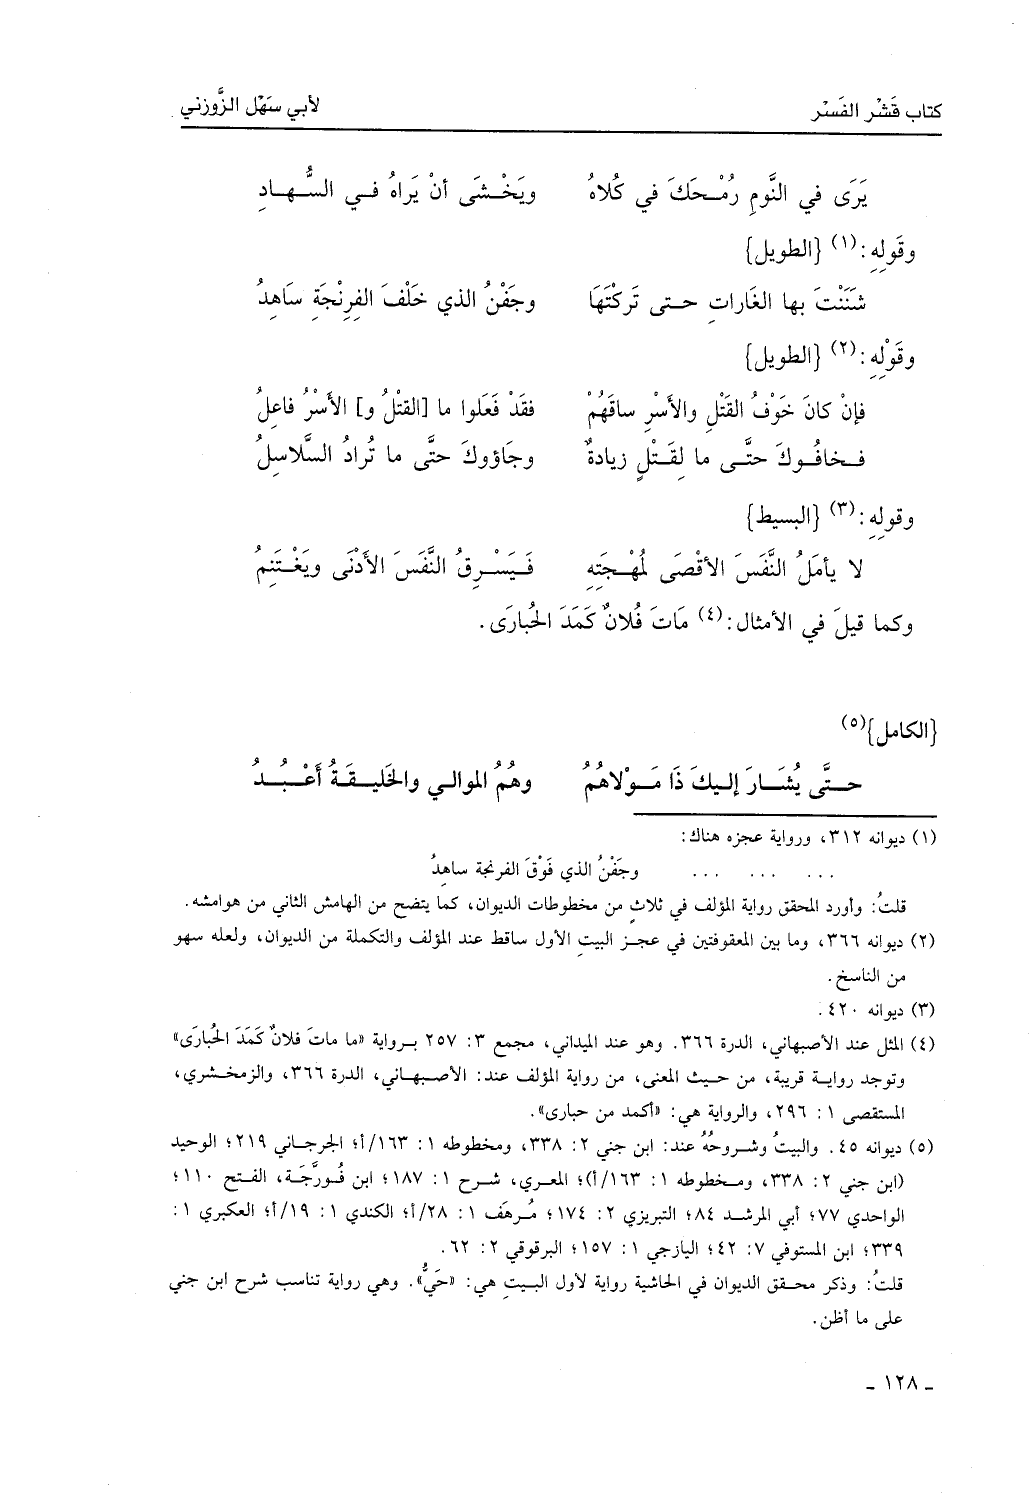 كتاب قَشْر الفَسْر لأبي سَهْل الزَّوزني
يَرَى في النَّومِ رُمْحَكَ في كُلاهُ ويَخْشَى أنْ يَراهُ في السُّهادِ
وقَولِهِ:(١) {الطويل}
شَنَنْتَ بها الغَاراتِ حتى تَركْتَهَا وجَفْنُ الذي خَلْفَ الفِرِنْجَةِ سَاهِدُ
وقَوْلِهِ:(٢) {الطويل}
فإنْ كانَ خَوْفُ القَتْلِ والأَسْرِ ساقَهُمْ فقَدْ فَعَلوا ما [القتْلُ و] الأَسْرُ فاعِلُ
فخافُوكَ حتَّى ما لِقَتْلٍ زيادةٌ وجَاؤوكَ حتَّى ما تُرادُ السَّلاسِلُ
وقولِهِ:(٣) {البسيط}
لا يأمَلُ النَّفَسَ الأقْصَى لمُهْجَتِهِ فَيَسْرِقُ النَّفَسَ الأَدْنَى ويَغْتَنِمُ
وكما قيلَ في الأمثال:(٤) مَاتَ فُلانٌ كَمَدَ الحُبارَى.
{الكامل}(٥)
حتَّى يُشَارَ إليكَ ذَا مَوْلاهُمُ وهُمُ الموالي والخَليقَةُ أَعْبُدُ
(١) ديوانه ٣١٢، ورواية عجزه هناك:
... ... ... وجَفْنُ الذي فَوْقَ الفرنجة ساهِدُ
قلتُ: وأورد المحقق رواية المؤلف في ثلاثٍ من مخطوطات الديوان، كما يتضح من الهامش الثاني من هوامشه.
(٢) ديوانه ٣٦٦، وما بين المعقوفتين في عجز البيتِ الأول ساقط عند المؤلف والتكملة من الديوان، ولعله سهو
من الناسخ.
(٣) ديوانه ٤٢٠.
(٤) المثل عند الأصبهاني، الدرة ٣٦٦. وهو عند الميداني، مجمع ٣: ٢٥٧ برواية «ما ماتَ فلانٌ كَمَدَ الحُبارَى»
وتوجد رواية قريبة، من حيث المعنى، من رواية المؤلف عند: الأصبهاني، الدرة ٣٦٦، والزمخشري،
المستقصى ١: ٢٩٦، والرواية هي: «أكمد من حبارى».
(٥) ديوانه ٤٥. والبيتُ وشروحُهُ عند: ابن جني ٢: ٣٣٨، ومخطوطه ١: ١٦٣/أ؛ الجرجاني ٢١٩؛ الوحيد
(ابن جني ٢: ٣٣٨، ومخطوطه ١: ١٦٣/أ)؛ المعري، شرح ١: ١٨٧؛ ابن فُورَّجَة، الفتح ١١٠؛
الواحدي ٧٧؛ أبي المرشد ٨٤؛ التبريزي ٢: ١٧٤؛ مُرهَف ١: ٢٨/أ؛ الكندي ١: ١٩/أ؛ العكبري ١:
٣٣٩؛ ابن المستوفي ٧: ٤٢؛ اليازجي ١: ١٥٧؛ البرقوقي ٢: ٦٢.
قلتُ: وذكر محقق الديوان في الحاشية رواية لأول البيتِ هي: «حَيُّ». وهي رواية تناسب شرح ابن جني
على ما أظن.
ـ ١٢٨ ـ